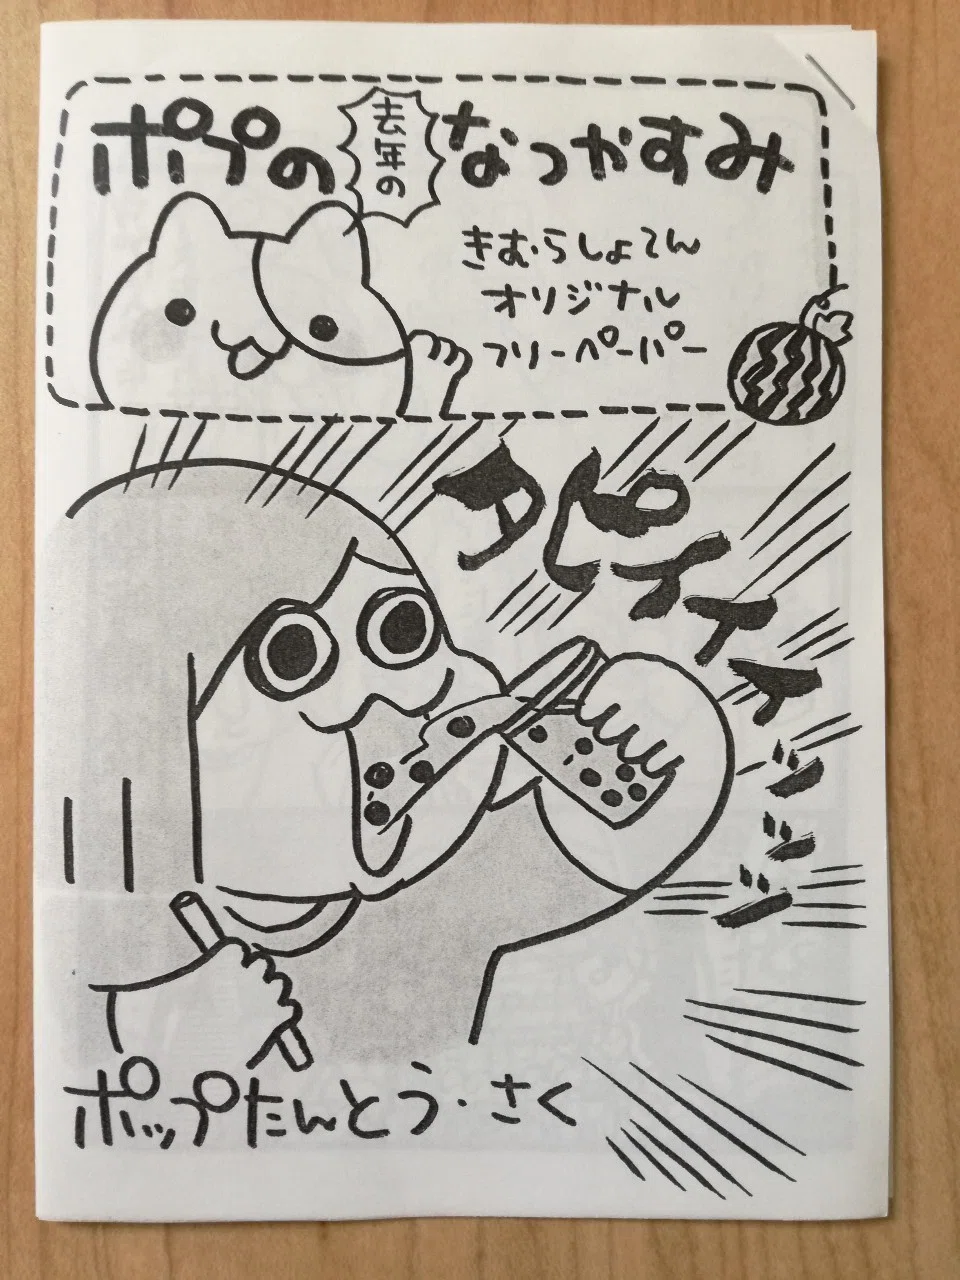 ポプの
去年の
なつやすみ
きむらしょてん
オリジナル
フリーペーパー
タピィィィッッッ
ポップたんとう・さく